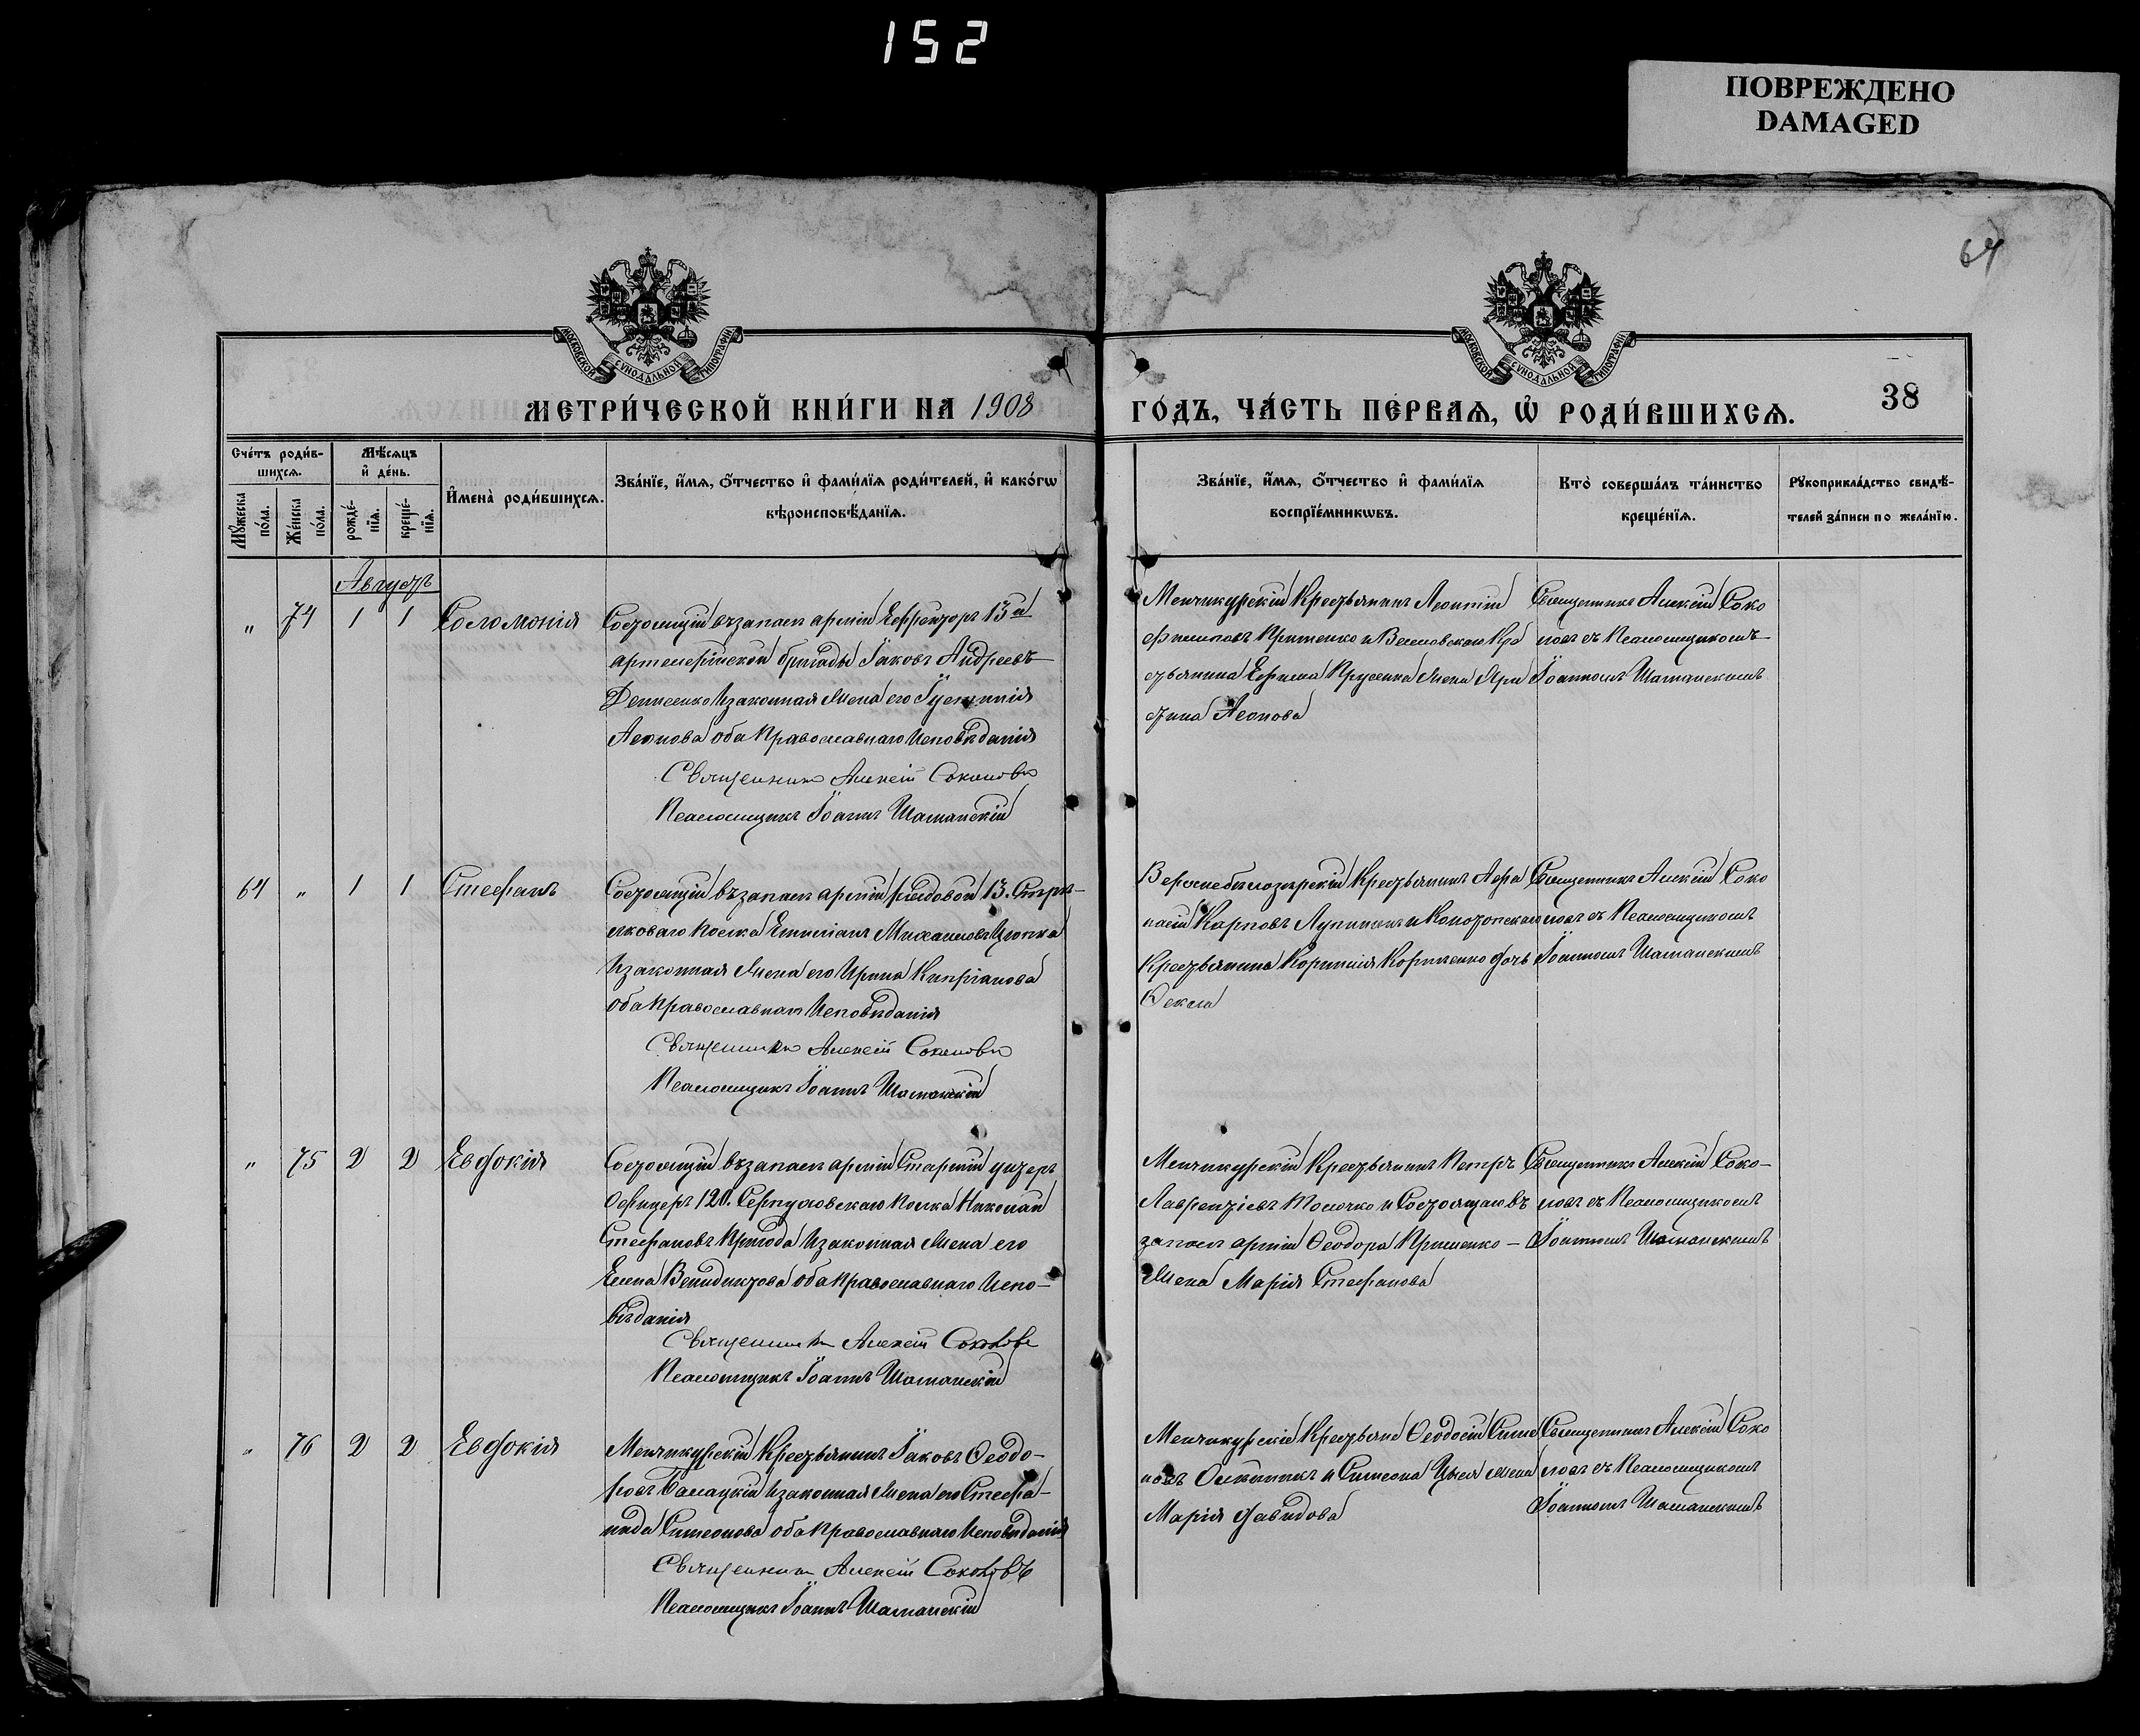 152
ПОВРЕЖДЕНО
DAMAGED
64
МОСКОВСКОЙ СѴНОДАЛЬНОЙ ТИПОГРАФІИ
МОСКОВСКОЙ СѴНОДАЛЬНОЙ ТИПОГРАФІИ
МЕТРИ́ЧЕСКОЙ КНИ́ГИ НА 1908
ГО́ДЪ, ЧА́СТЬ ПЕ́РВАѦ, Ѡ҆ РОДИ́ВШИХСѦ.
38
Сче́тъ роди́в-
шихсѧ.
Мꙋжеска
по́ла.
Же́нска
по́ла.
Мѣ́сѧцъ
и҆ де́нь.
рожде́-
нїѧ.
креще́-
нїѧ.
И҆мена̀ роди́вшихсѧ.
Зва́нїе, и҆́мѧ, ѻ҆́тчество и҆ фами́лїѧ роди́телей, и҆ како́гѡ
вѣроисповѣ́данїѧ.
Зва́нїе, и҆́мѧ, ѻ҆́тчество и҆ фами́лїѧ
воспрїе́мникѡвъ.
Кто̀ соверша́лъ та́инство
креще́нїѧ.
Рꙋкоприкла́дство свидѣ́-
телей за́писи по жела́нїю.
Августъ
„ 74 1 1 Соломонія
Состоящій въ запасѣ арміи Ефрейторъ 13й
артилерійской бригады Іаковъ Андреевъ
Денисенко и законная жена его Іустинія
Леонова оба Православнаго Исповѣданія
Священникъ Алексій Соколовъ
Псаломщикъ Іоаннъ Шаманскій
Менчикурскій Крестьянинъ Леонтій
Филиповъ Пришенко и Веселовскаго Кре
стьянина Ефима жена Хри
стина Леонова
Священникъ Алексій Соко
ловъ съ Псаломщикомъ
Іоанномъ Шаманскимъ
64 „ 1 1 Стефанъ
Состоящій въ запасѣ арміи рядовой 13. Стрѣ-
лковаго полка Емиліанъ Михаиловъ Цюпка
и законная жена его Ирина Кипріанова
оба Православнаго Исповѣданія
Священникъ Алексій Соколовъ
Псаломщикъ Іоаннъ Шаманскій
Верхнебѣлозерскій Крестьянинъ Афа
насій Карповъ и Конотопскаго
Крестьянина Корнилія Корниенко дочь
Ѳекла
Священникъ Алексій Соко
ловъ съ Псаломщикомъ
Іоанномъ Шаманскимъ
„ 75 2 2 Евдокія
Состоящій въ запасѣ арміи Старшій унтеръ
Офицеръ 120. Серпуховскаго полка Николай
Стефановъ Пригода и законная жена его
Елена Венидиктова оба Православнаго Испо-
вѣданія
Священникъ Алексій Соколовъ
Псаломщикъ Іоаннъ Шаманскій
Менчикурскій Крестьянинъ Петръ
Лаврентіевъ Толочко и Состоящаго въ
запасѣ арміи Ѳеодора Пришенко -
жена Марія Стефанова
Священникъ Алексій Соко-
ловъ съ Псаломщикомъ
Іоанномъ Шаманскимъ
„ 76 2 2 Евдокія
Менчикурскій Крестьянинъ Іаковъ Ѳеодо-
ровъ Балацкій и законная жена его Стефа-
нида Симеонова оба Православнаго Исповѣданія
Священникъ Алексій Соколовъ
Псаломщикъ Іоаннъ Шаманскій
Менчикурскіе Крестьяне Ѳеодосій Симе
новъ и Симеона жена
Марія Давидова
Священникъ Алексій Соко
ловъ съ Псаломщикомъ
Іоанномъ Шаманскимъ